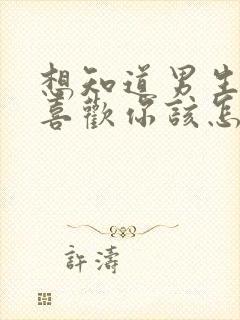 想知道男生
喜歡你該怎
許濤